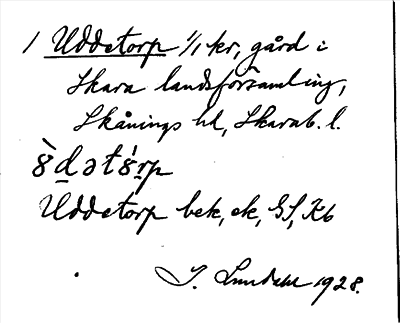 1 Uddetorp 1/1 kr, gård i
Skara landsförsamling,
Skånings hd, Skarab. l.
ꞛ̀d̲ətꞛ́r̲p
Uddetorp bek, ek, GS, Kb
I. Lundahl 1928.